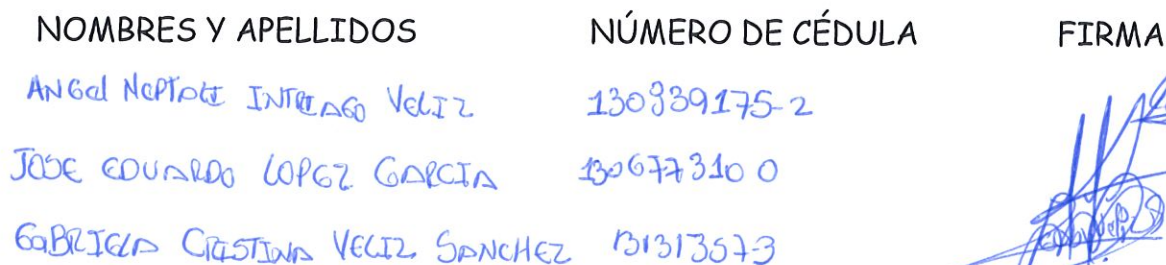 NOMBRES Y APELLIDOS NÚMERO DE CÉDULA FIRMA
ANGel NePTALI INTRIAGO VeLIZ 130939175-2
JOSE EDUARDO LOPEZ GARCIA 130677310 0
GaBRIELA CRISTINA VELIZ SANCHEZ 13131357-3